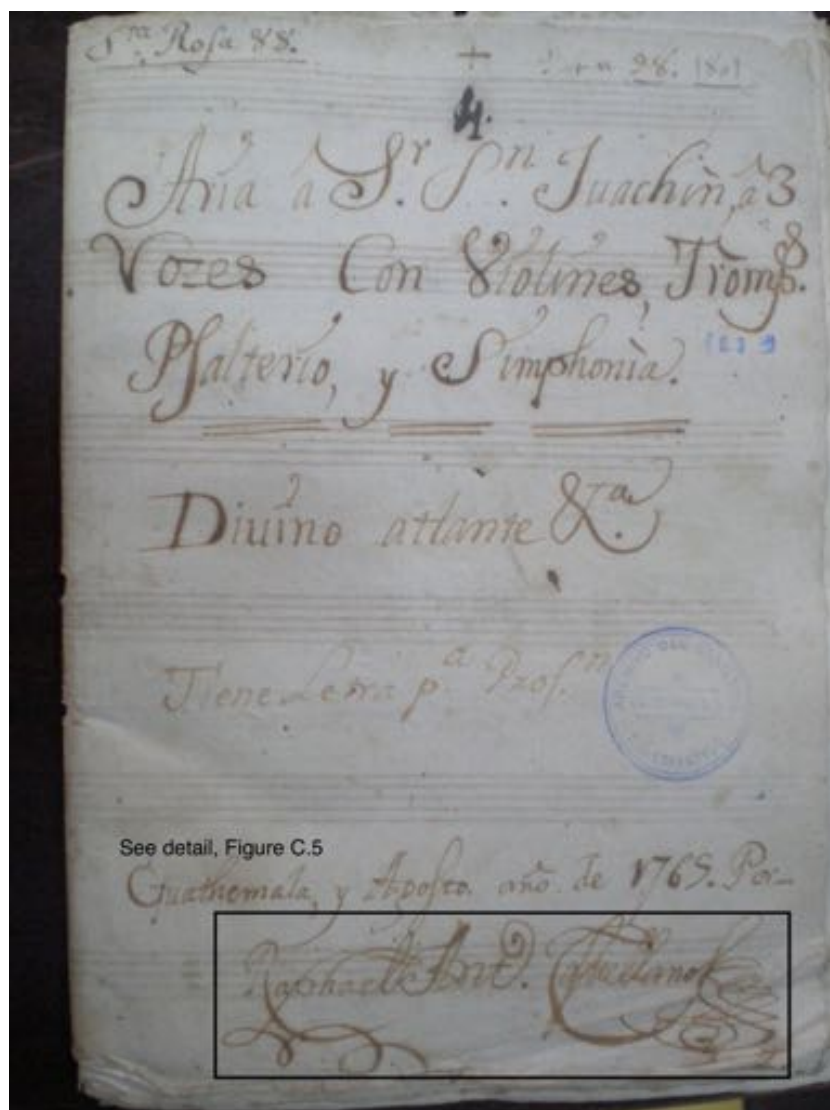 S.ta Rosa 88.
28. (80)
4.
Aria â S.r S.n Juachin, â 3
Vozes Con Violines, Tromp.s
Psalterio, y Simphonìa.
Diuino atlante &.ta
Tiene Letra p.a Prof.n
See detail, Figure C.5
Guathemala, y Agosto. año de 1765. Por
Raphael Ant.o Castellanos